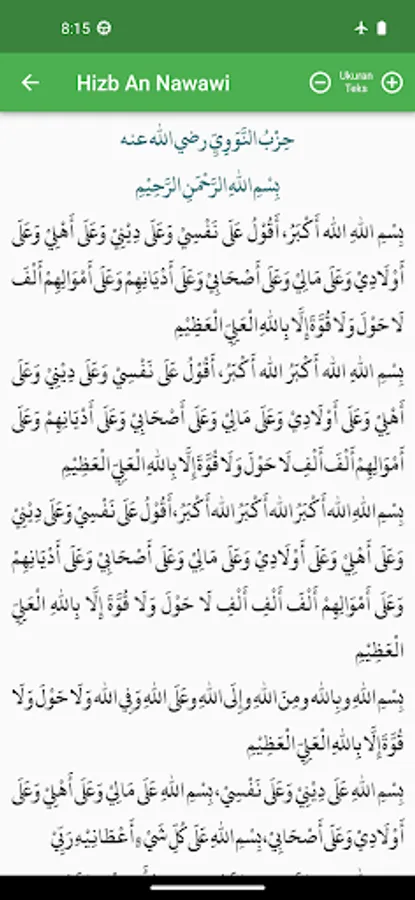 8:15
Hizb An Nawawi
Ukuran
Teks
حِزْبُ النَّوَوِيِّ رضي الله عنه
بِسْمِ اللهِ الرَّحْمَنِ الرَّحِيْمِ
بِسْمِ اللهِ الله أَكْبَرُ، أَقُوْلُ عَلَى نَفْسِيْ وَعَلَى دِيْنِيْ وَعَلَى أَهْلِيْ وَعَلَى
أَوْلَادِيْ وَعَلَى مَالِيْ وَعَلَى أَصْحَابِيْ وَعَلَى أَدْيَانِهِمْ وَعَلَى أَمْوَالِهِمْ أَلْفَ
لَا حَوْلَ وَلَا قُوَّةَ إِلَّا بِاللهِ الْعَلِيِّ الْعَظِيْمِ
بِسْمِ اللهِ الله أَكْبَرُ الله أَكْبَرُ، أَقُوْلُ عَلَى نَفْسِيْ وَعَلَى دِيْنِيْ وَعَلَى
أَهْلِيْ وَعَلَى أَوْلَادِيْ وَعَلَى مَالِيْ وَعَلَى أَصْحَابِيْ وَعَلَى أَدْيَانِهِمْ وَعَلَى
أَمْوَالِهِمْ أَلْفَ أَلْفِ لَا حَوْلَ وَلَا قُوَّةَ إِلَّا بِاللهِ الْعَلِيِّ الْعَظِيْمِ
بِسْمِ اللهِ الله أَكْبَرُ الله أَكْبَرُ الله أَكْبَرُ، أَقُوْلُ عَلَى نَفْسِيْ وَعَلَى دِيْنِيْ
وَعَلَى أَهْلِيْ وَعَلَى أَوْلَادِيْ وَعَلَى مَالِيْ وَعَلَى أَصْحَابِيْ وَعَلَى أَدْيَانِهِمْ
وَعَلَى أَمْوَالِهِمْ أَلْفَ أَلْفِ أَلْفِ لَا حَوْلَ وَلَا قُوَّةَ إِلَّا بِاللهِ الْعَلِيِّ
الْعَظِيْمِ
بِسْمِ اللهِ وبِالله ومِنَ اللهِ وإِلَى اللهِ وعَلَى اللهِ وَفِي الله وَلَا حَوْلَ وَلَا
قُوَّةَ إِلَّا بِاللهِ الْعَلِيِّ الْعَظِيْمِ
بِسْمِ اللهِ عَلَى دِيْنِيْ وَعَلَى نَفْسِيْ، بِسْمِ اللهِ عَلَى مَالِيْ وَعَلَى أَهْلِيْ وَعَلَى
أَوْلَادِيْ وَعَلَى أَصْحَابِيْ، بِسْمِ اللهِ عَلَى كُلِّ شَيْءٍ أَعْطَانِيْهِ رَبِّيْ